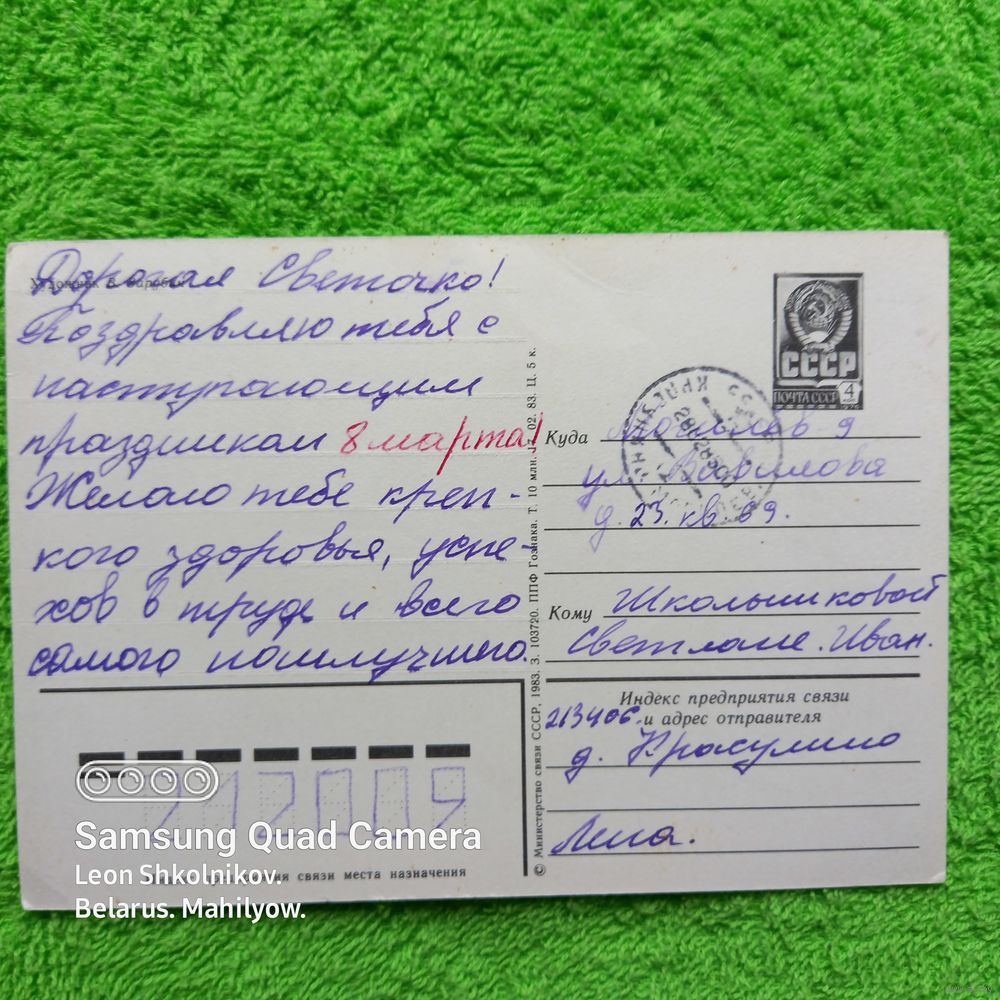 Художник В. Зарубин
Дорогая Светочка!
Поздравляю тебя с
наступающим
праздником 8 марта!
Желаю тебе креп-
кого здоровья, успе-
хов в труде и всего
самого наилучшего.
© Министерство связи СССР, 1983. З. 103720. ППФ Гознака. Т. 10 млн. 17. 02. 83. Ц. 5 к.
СССР
ПОЧТА СССР 4
Куда Могилев-9
ул. Вавилова
д. 23. кв. 69.
Кому Школьниковой
Светлане. Иван.
Индекс предприятия связи
и адрес отправителя
213406.
д. Красулино
Лена.
212009
связи места назначения
Samsung Quad Camera
Leon Shkolnikov.
Belarus. Mahilyow.